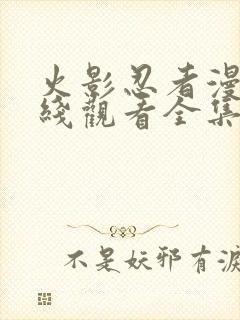 火影忍者漫
綫觀看全集
不是妖邪有淚